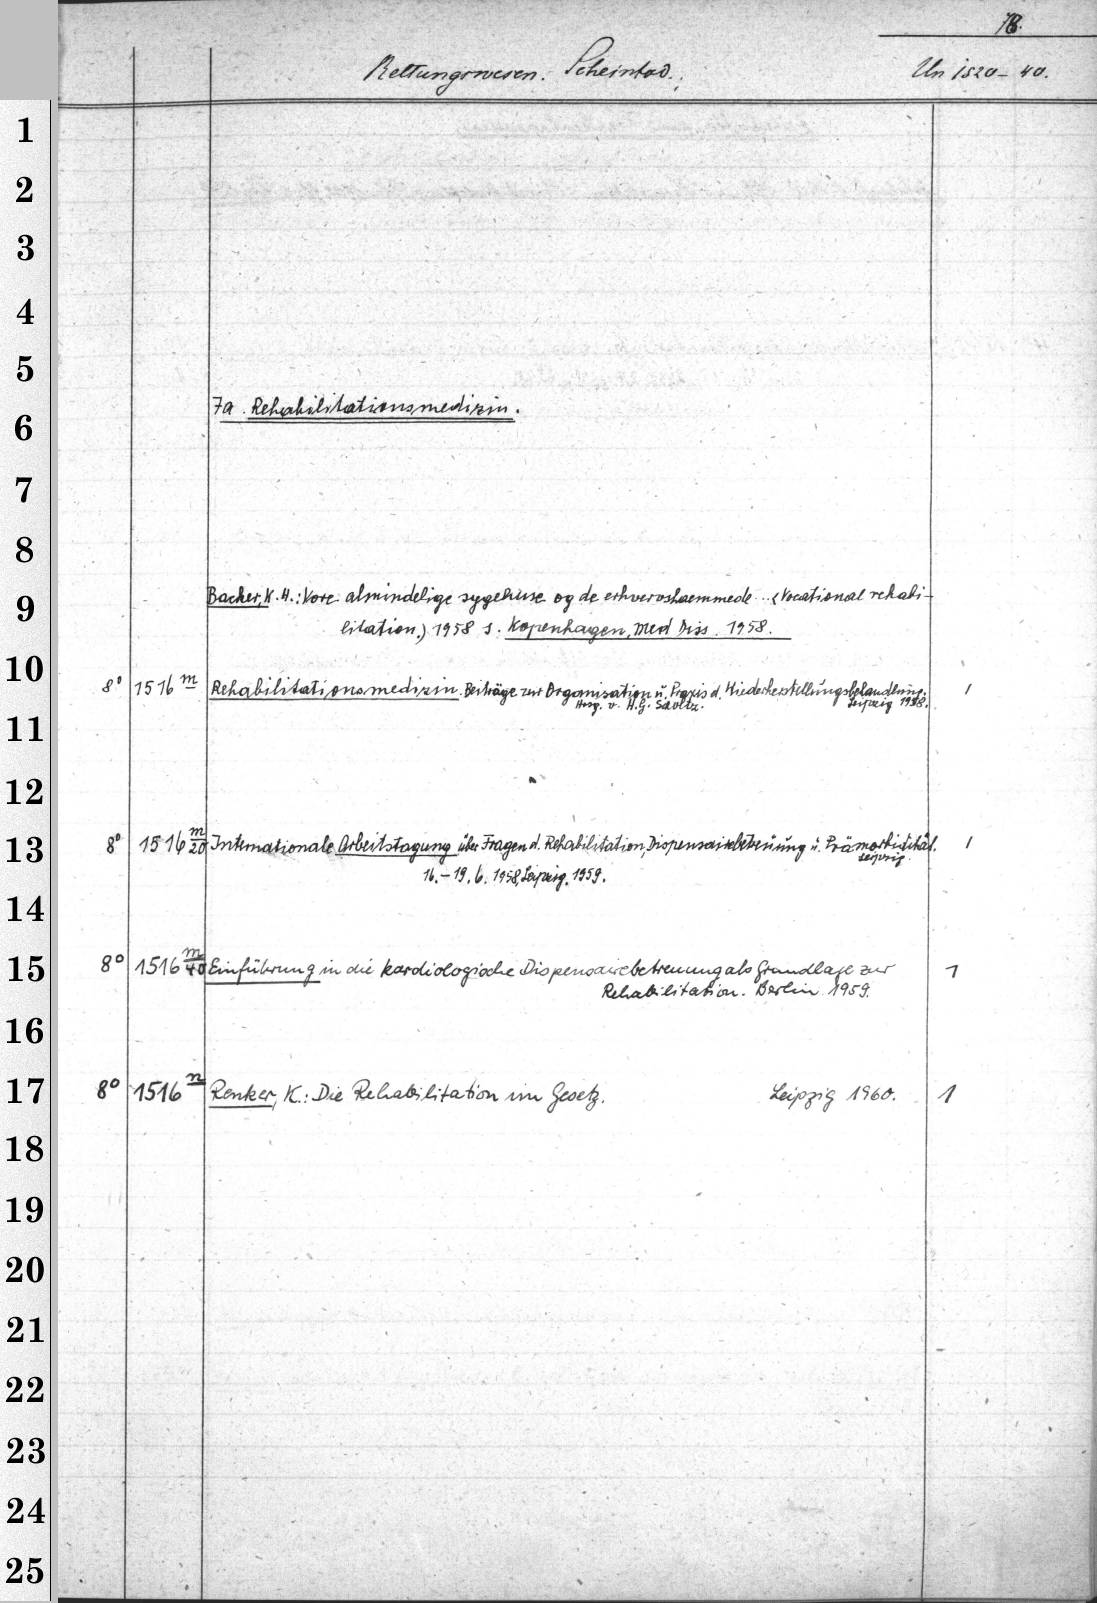 78.
Rettungswesen. Scheintod.
Un 1520-40.
1
2
3
4
5
7a. Rehabilitationsmedizin.
6
7
8
9
Backer, K. H.: Vore almindelige sygehuse og de erhvervshaemmede ... (Vocational rehabi-
litation.) 1958 s. Kopenhagen, Med Diss. 1958.
10
8° 1516 m Rehabilitationsmedizin. Beiträge zur Organisation u. Praxis d. Wiederherstellungsbehandlung. 1
Hrsg. v. H.G. Leipzig 1958.
11
12
13
8° 1516 m/20 Internationale Arbeitstagung über Fragen d. Rehabilitation, Dispensairebetreuung u. Prämorbidität. 1
Leipzig
16.-19.6.1958, Leipzig. 1959.
14
15
8° 1516 m/40 Einführung in die kardiologische Dispensairebetreuung als Grundlage zur 1
Rehabilitation. Berlin 1959.
16
17
8° 1516 n Renker, K.: Die Rehabilitation im Gesetz. Leipzig 1960. 1
18
19
20
21
22
23
24
25